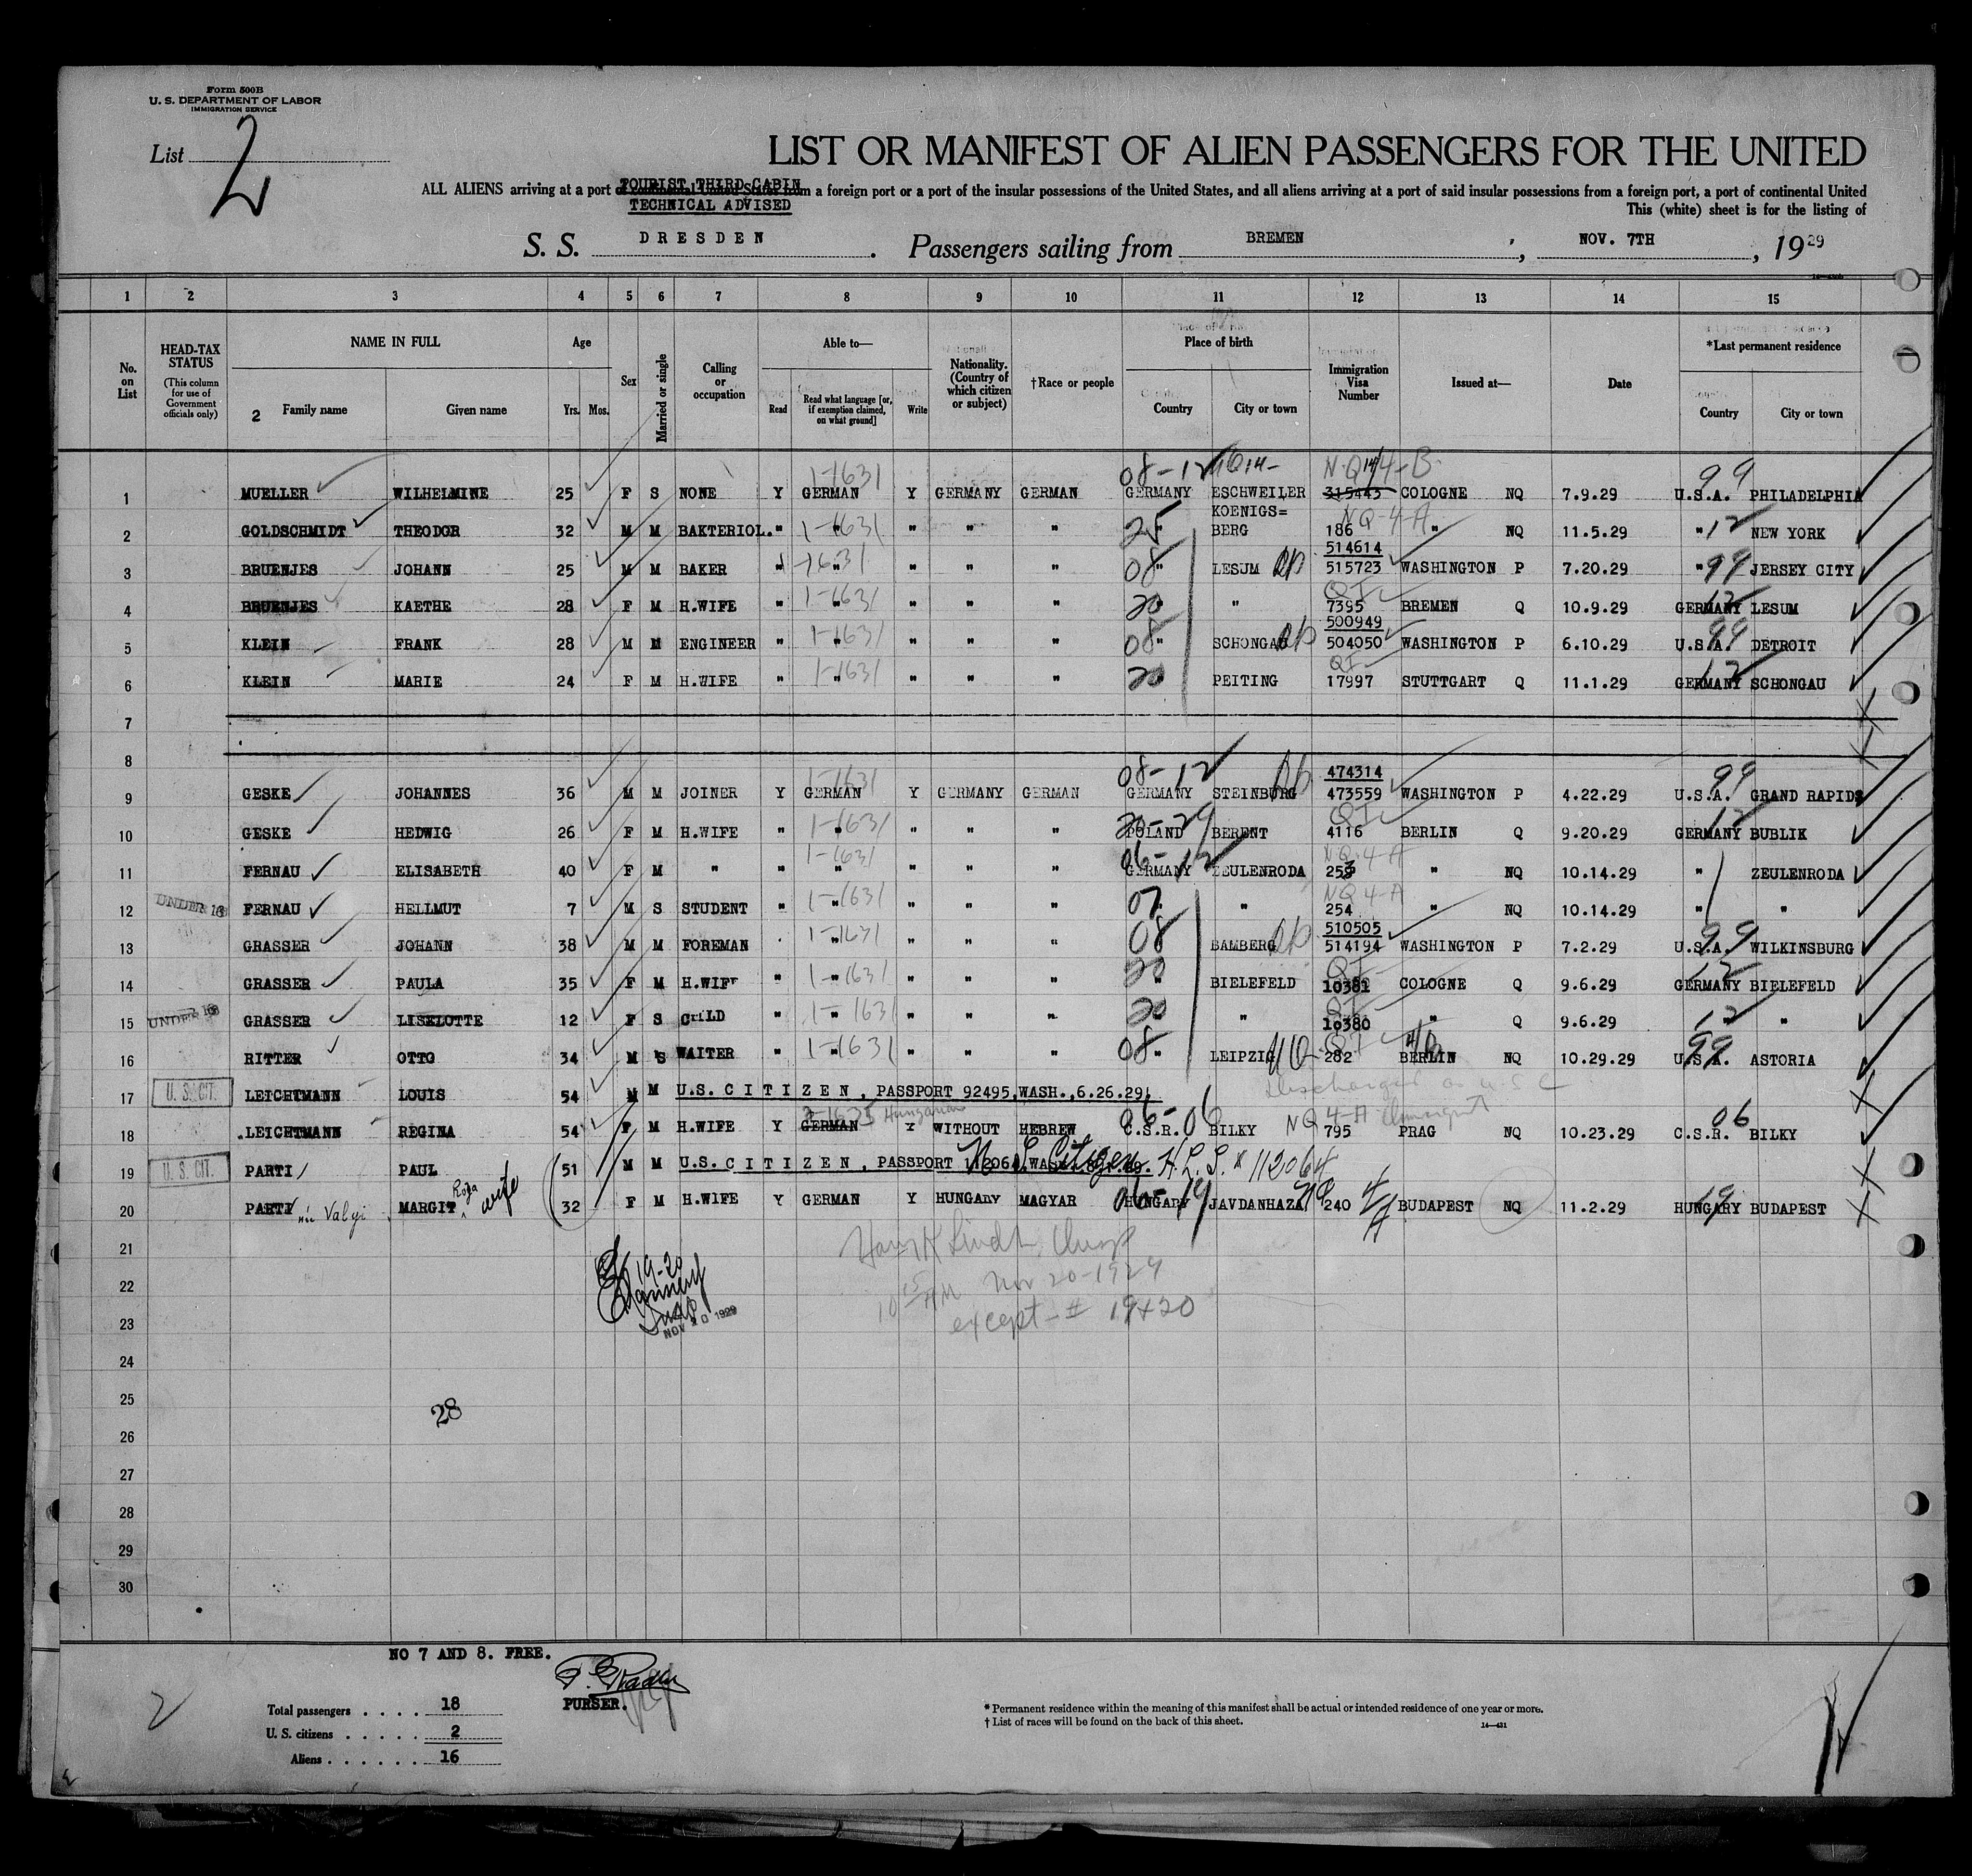 Form 500B
U. S. DEPARTMENT OF LABOR
IMMIGRATION SERVICE
List 2
LIST OR MANIFEST OF ALIEN PASSENGERS FOR THE UNITED
TOURIST THIRD CABIN
ALL ALIENS arriving at a port of continental United States from a foreign port or a port of the insular possessions of the United States, and all aliens arriving at a port of said insular possessions from a foreign port, a port of continental United
TECHNICAL ADVISED
This (white) sheet is for the listing of
S. S. DRESDEN. Passengers sailing from BREMEN, NOV. 7TH, 1929
1 2 3 4 5 6 7 8 9 10 11 12 13 14 15
No. on List
HEAD-TAX STATUS
(This column for use of Government officials only)
NAME IN FULL
2 Family name
Given name
Age
Yrs. Mos.
Sex
Married or single
Calling or occupation
Able to—
Read
Read what language [or, if exemption claimed, on what ground]
Write
Nationality. (Country of which citizen or subject)
†Race or people
Place of birth
Country
City or town
Immigration Visa Number
Issued at—
Date
*Last permanent residence
Country
City or town
08-12 NQ 14-B 99
1 MUELLER WILHELMINE 25 F S NONE Y GERMAN 1-1631 Y GERMANY GERMAN GERMANY ESCHWEILER 315443 COLOGNE NQ 7.9.29 U.S.A. PHILADELPHIA
KOENIGS= NQ-4-A
2 GOLDSCHMIDT THEODOR 32 M M BAKTERIOL. " " 1-1631 " " " 25 " BERG 186 " NQ 11.5.29 " 12 NEW YORK
514614
3 BRUENJES JOHANN 25 M M BAKER " " 1631 " " " 08 " LESUM 515723 WASHINGTON P 7.20.29 " 99 JERSEY CITY
QI
4 BRUENJES KAETHE 28 F M H.WIFE " " 1-1631 " " " 20 " " 7395 BREMEN Q 10.9.29 GERMANY 12 LESUM
500949
5 KLEIN FRANK 28 M M ENGINEER " " 1-1631 " " " 08 " SCHONGAU 504050 WASHINGTON P 6.10.29 U.S.A. 99 DETROIT
QI
6 KLEIN MARIE 24 F M H.WIFE " " 1-1631 " " " 20 " PEITING 17997 STUTTGART Q 11.1.29 GERMANY 12 SCHONGAU
7
8
08-12 474314 99
9 GESKE JOHANNES 36 M M JOINER Y GERMAN 1-1631 Y GERMANY GERMAN GERMANY STEINBURG 473559 WASHINGTON P 4.22.29 U.S.A. GRAND RAPIDS
QI
10 GESKE HEDWIG 26 F M H.WIFE " " 1-1631 " " " 20-29 POLAND BERENT 4116 BERLIN Q 9.20.29 GERMANY 12 BUBLIK
06-12 NQ-4-A
11 FERNAU ELISABETH 40 F M " " " 1-1631 " " " GERMANY ZEULENRODA 253 " NQ 10.14.29 " ZEULENRODA
NQ 4-A
12 UNDER 16 FERNAU HELLMUT 7 M S STUDENT " " 1-1631 " " " 07 " " 254 " NQ 10.14.29 " "
510505
13 GRASSER JOHANN 38 M M FOREMAN " " 1-1631 " " " 08 " BAMBERG 514194 WASHINGTON P 7.2.29 U.S.A. 99 WILKINSBURG
QI
14 GRASSER PAULA 35 F M H.WIFE " " 1-1631 " " " 20 " BIELEFELD 10381 COLOGNE Q 9.6.29 GERMANY 12 BIELEFELD
QI
15 UNDER 16 GRASSER LISELOTTE 12 F S CHILD " " 1-1631 " " " 20 " " 10380 " Q 9.6.29 " 12 "
QI
16 RITTER OTTO 34 M S WAITER " " 1-1631 " " " 08 " LEIPZIG 282 BERLIN NQ 10.29.29 U.S.A. 99 ASTORIA
Discharged as U S C
17 U. S. CIT. LEICHTMANN LOUIS 54 M M U.S. CITIZEN, PASSPORT 92495, WASH., 6.26.29,
Hungarian 06-06 NQ 4-A Immigrant 06
18 LEICHTMANN REGINA 54 F M H.WIFE Y GERMAN Y WITHOUT HEBREW C.S.R. BILKY 795 PRAG NQ 10.23.29 C.S.R. BILKY
19 U. S. CIT. PARTI PAUL 51 M M U.S. CITIZEN, PASSPORT 112064, WASH. U S Citizen. H.L.S. # 112064
Roza
20 PARTI née Valyi MARGIT wife 32 F M H.WIFE Y GERMAN Y HUNGARY MAGYAR 06-19 HUNGARY JAVDANHAZA 240 4/A BUDAPEST NQ 11.2.29 HUNGARY 19 BUDAPEST
21
22
23
24
25
26
27
28
29
30
19-20
Insp
NOV 20 1929
Insp
10 15 AM Nov 20-1929
except - # 19+20
28
NO 7 AND 8. FREE.
PURSER.
2
Total passengers . . . . 18
U. S. citizens . . . . . 2
Aliens . . . . . . 16
* Permanent residence within the meaning of this manifest shall be actual or intended residence of one year or more.
† List of races will be found on the back of this sheet.
14—431